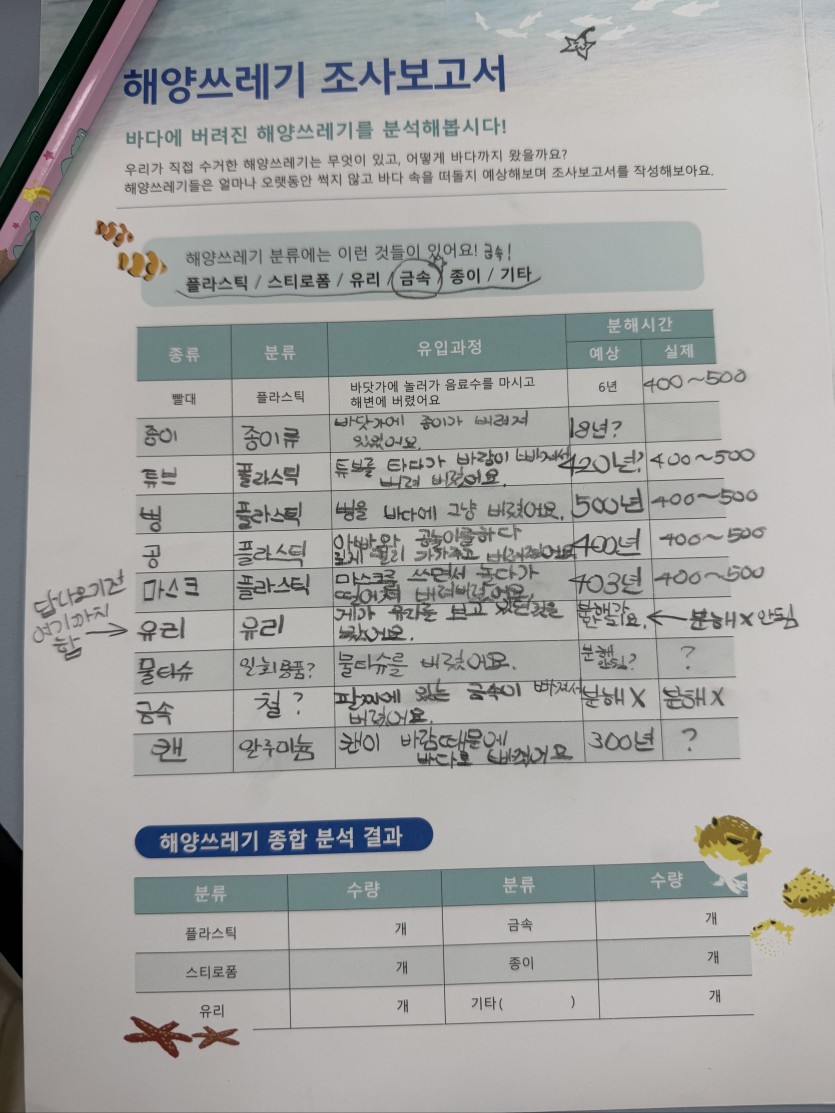 해양쓰레기 조사보고서
바다에 버려진 해양쓰레기를 분석해봅시다!
우리가 직접 수거한 해양쓰레기는 무엇이 있고, 어떻게 바다까지 왔을까요?
해양쓰레기들은 얼마나 오랫동안 썩지 않고 바다 속을 떠돌지 예상해보며 조사보고서를 작성해보아요.
해양쓰레기 분류에는 이런 것들이 있어요! 금속!
플라스틱 / 스티로폼 / 유리 / 금속 / 종이 / 기타
종류 분류 유입과정 분해시간
예상 실제
빨대 플라스틱 바닷가에 놀러가 음료수를 마시고 6년 400~500
해변에 버렸어요
종이 종이류 바닷가에 종이가 버려져 18년?
있었어요.
튜브 플라스틱 튜브를 타다가 바람이 빠져서 420년? 400~500
버려 버렸어요.
병 플라스틱 병을 바다에 그냥 버렸어요. 500년 400~500
공 플라스틱 아빠와 공놀이를하다 400년 400~500
멀리 버려졌어요
마스크 플라스틱 마스크를 쓰면서 놀다가 403년 400~500
떨어져 버려버렸어요.
답나오기전
여기까지
함
유리 유리 게가 유리를 보고 있던것을 분해가 분해X안됨
봤어요. 안 되요.
물티슈 일회용품? 물티슈를 버렸어요. 분해 ?
안됨?
금속 철? 팔찌에 있는 금속이 빠져서 분해X 분해X
버렸어요.
캔 알루미늄 캔이 바람때문에 300년 ?
바다로 빠졌어요
해양쓰레기 종합 분석 결과
분류 수량 분류 수량
플라스틱 개 금속 개
스티로폼 개 종이 개
유리 개 기타( ) 개